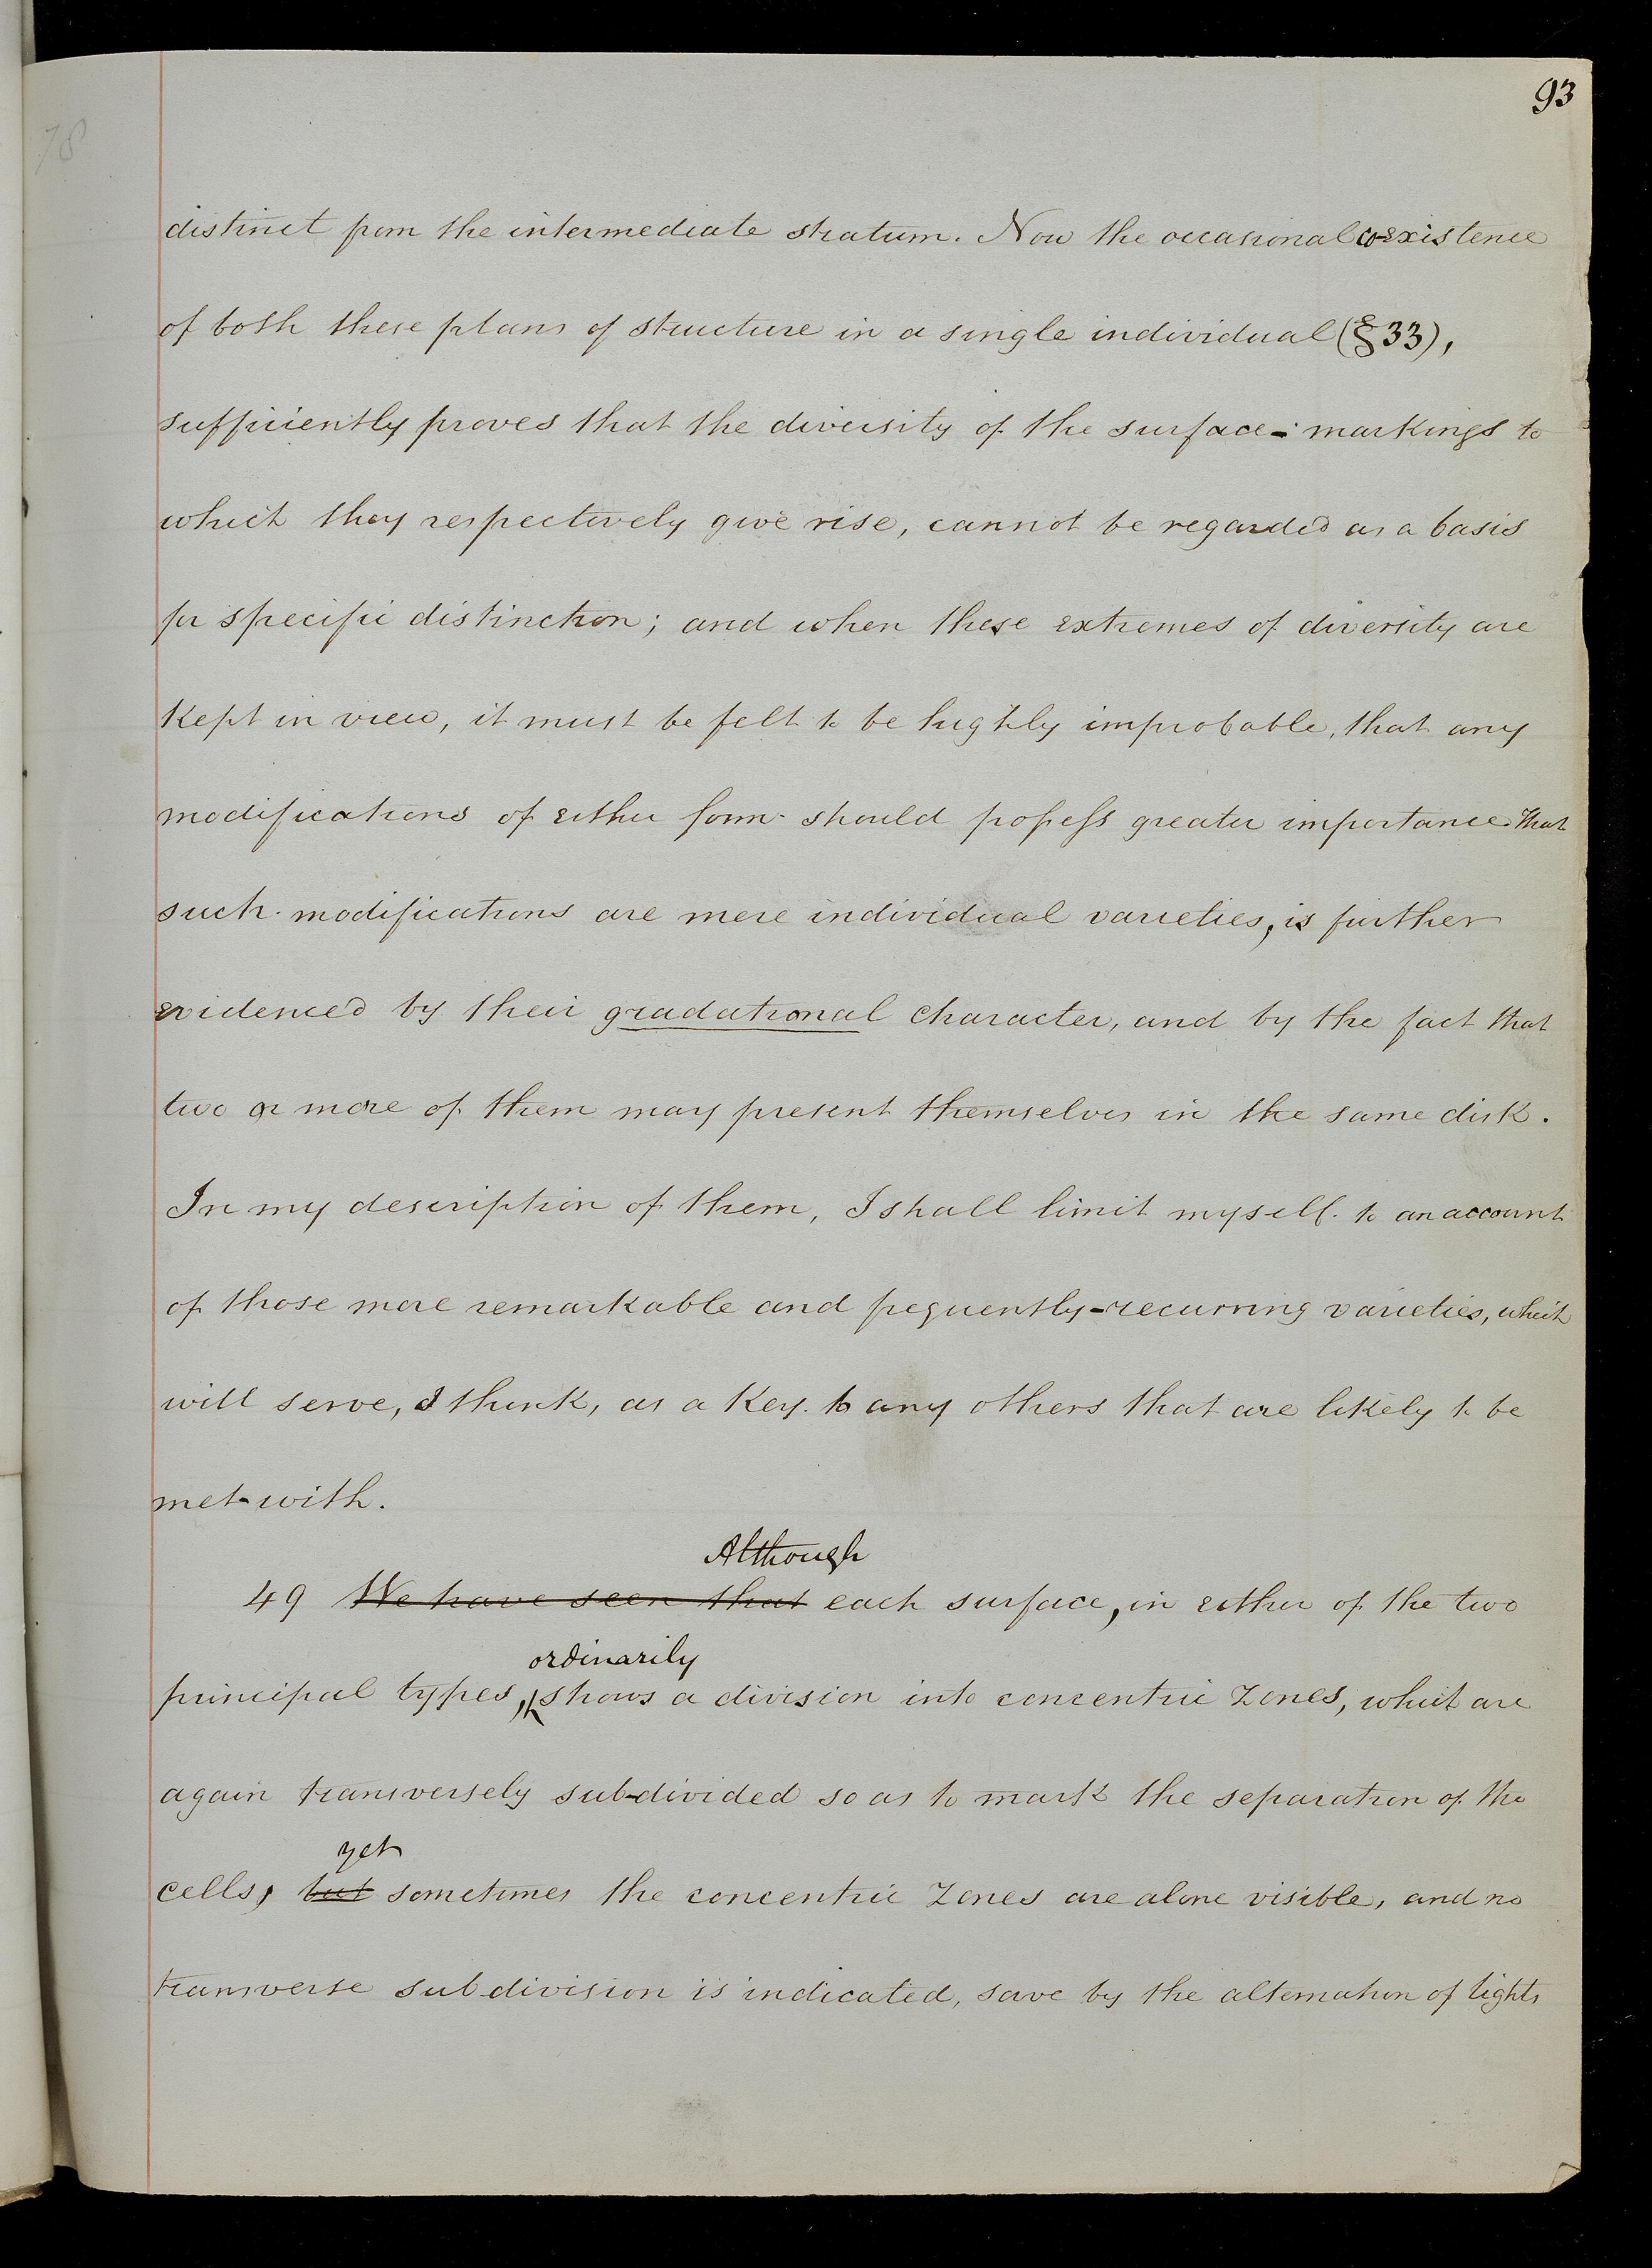 93
78
distinct from the intermediate stratum. Now the occasional co-existence
of both these plans of structure in a single individual (§33),
sufficiently proves that the diversity of the surface-markings to
which they respectively give rise, cannot be regarded as a basis
for specific distinction; and when these extremes of diversity are
kept in view, it must be felt to be highly improbable, that any
modifications of either form should possess greater importance. That
such modifications are mere individual varieties, is further
evidenced by their gradational character, and by the fact that
two or more of them may present themselves in the same disk.
In my description of them, I shall limit myself to an account
of those more remarkable and frequently-recurring varieties, which
will serve, I think, as a key to any others that are likely to be
met-with.
Although
49 We have seen that each surface, in either of the two
ordinarily
principal types, shows a division into concentric zones, which are
again transversely sub-divided so as to mark the separation of the
yet
cells, but sometimes the concentric zones are alone visible, and no
transverse subdivision is indicated, save by the alternation of lights